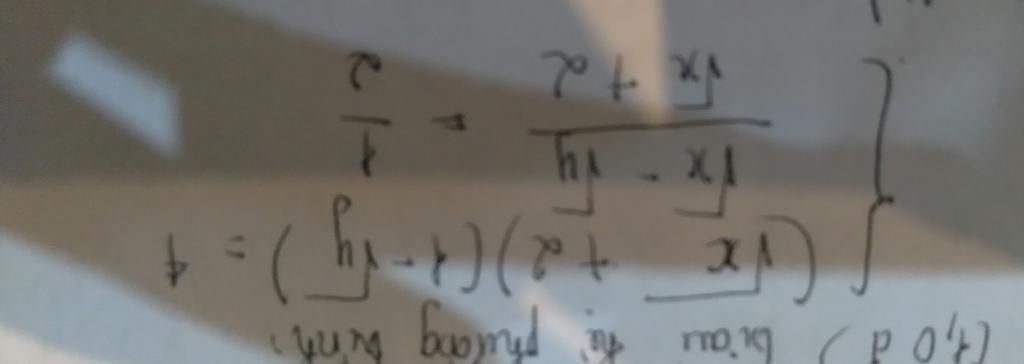 (1,0đ) Giải hệ phương trình:
(√x + 2)(1 - √y) = 1
(√x - √y)/(√x + 2) = 1/2